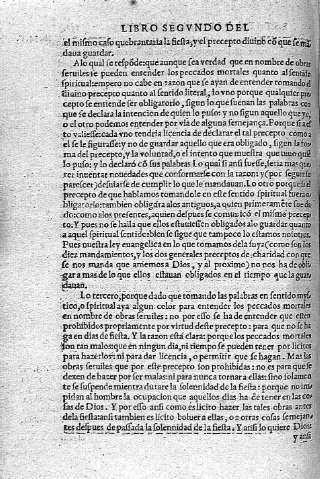 LIBRO SEGVNDO DEL
el mismo caso quebrantaria la fiesta, y el precepto diuino cõ que se mã
daua guardar.
Alo qual se respõde: que aunque sea verdad que en nombre de obras
seruiles se pueden entender los peccados mortales quanto al sentido
spiritual: empero no cabe en razon que se ayan de entender tomando el
diuino precepto quanto al sentido literal, lo vno porque qualquier pre
cepto se entiende ser obligatorio, segun lo que suenan las palabras con
que se declara la intencion de quien lo puso y no segun aquello que yo,
o el otro podemos entender por via de alguna semejança. Porque si a
to valiesse cada vno tendria licencia de declarar el tal precepto como a
el se le figurasse y no de guardar aquello que era obligado, segun la for
ma del precepto, y la voluntad, o el intento que muestra que tuuo quiẽ
lo puso: y lo declaró cõ sus palabras. Lo qual si ansi fuesse, seria mas que
rer inuentar nouedades que conformarse con la razon: y por seguir su
parescer, desuiarse de cumplir lo que le mandauan. Lo otro porque si el
precepto de que hablamos tomandole en este sentido spiritual fuera o-
bligatorio: tambien obligára alos antiguos, a quien primeramẽte fue da
do: como alos presentes, a quien despues se comunicó el mismo precep
to. Y pues no se halla que ellos estuuiessen obligados alo guardar quanto
a aquel spiritual sentido: bien se sigue que tampoco lo estamos nosotros.
Pues nuestra ley euangelica en lo que tomamos dela suya (como son los
diez mandamientos, y los dos generales preceptos de charidad con que
se nos manda que amemos a Dios, y al proximo) no nos ha de obli
gar a mas de lo que ellos estauan obligados en el tiempo que la guar
dauan.
Lo tercero, porque dado que tomando las palabras en sentido myst
tico, o spiritual aya algun color para entender los peccados mortales
en nombre de obras seruiles: no por esso se ha de entender que estes
prohibidos propriamente por virtud deste precepto: para que no se ha
ga en dias de fiesta. Y la razon esta clara: porque los peccados mortales
son tan malos que en ningun dia, ni tiempo se pueden tener por licitos
para hazerlos: ni para dar licencia, o permitir que se hagan. Mas las
obras seruiles que por este precepto son prohibidas: no es para que se
dexen de hazer por ser malas: ni para nunca tornar a ellas: sino solamen
te se suspende mientra dutare la solennidad de la fiesta: porque no im-
pidan al hombre la ocupacion que aquellos dias ha de tener en las co-
sas de Dios. Y por esso ansi como es licito hazer las tales obras antes
dela fiesta: ansi tambien es licito boluer a ellas, o a otras cosas semejan
tes despues de passada la solennidad de la fiesta. Y ansi lo quiere Dios:
y ansi